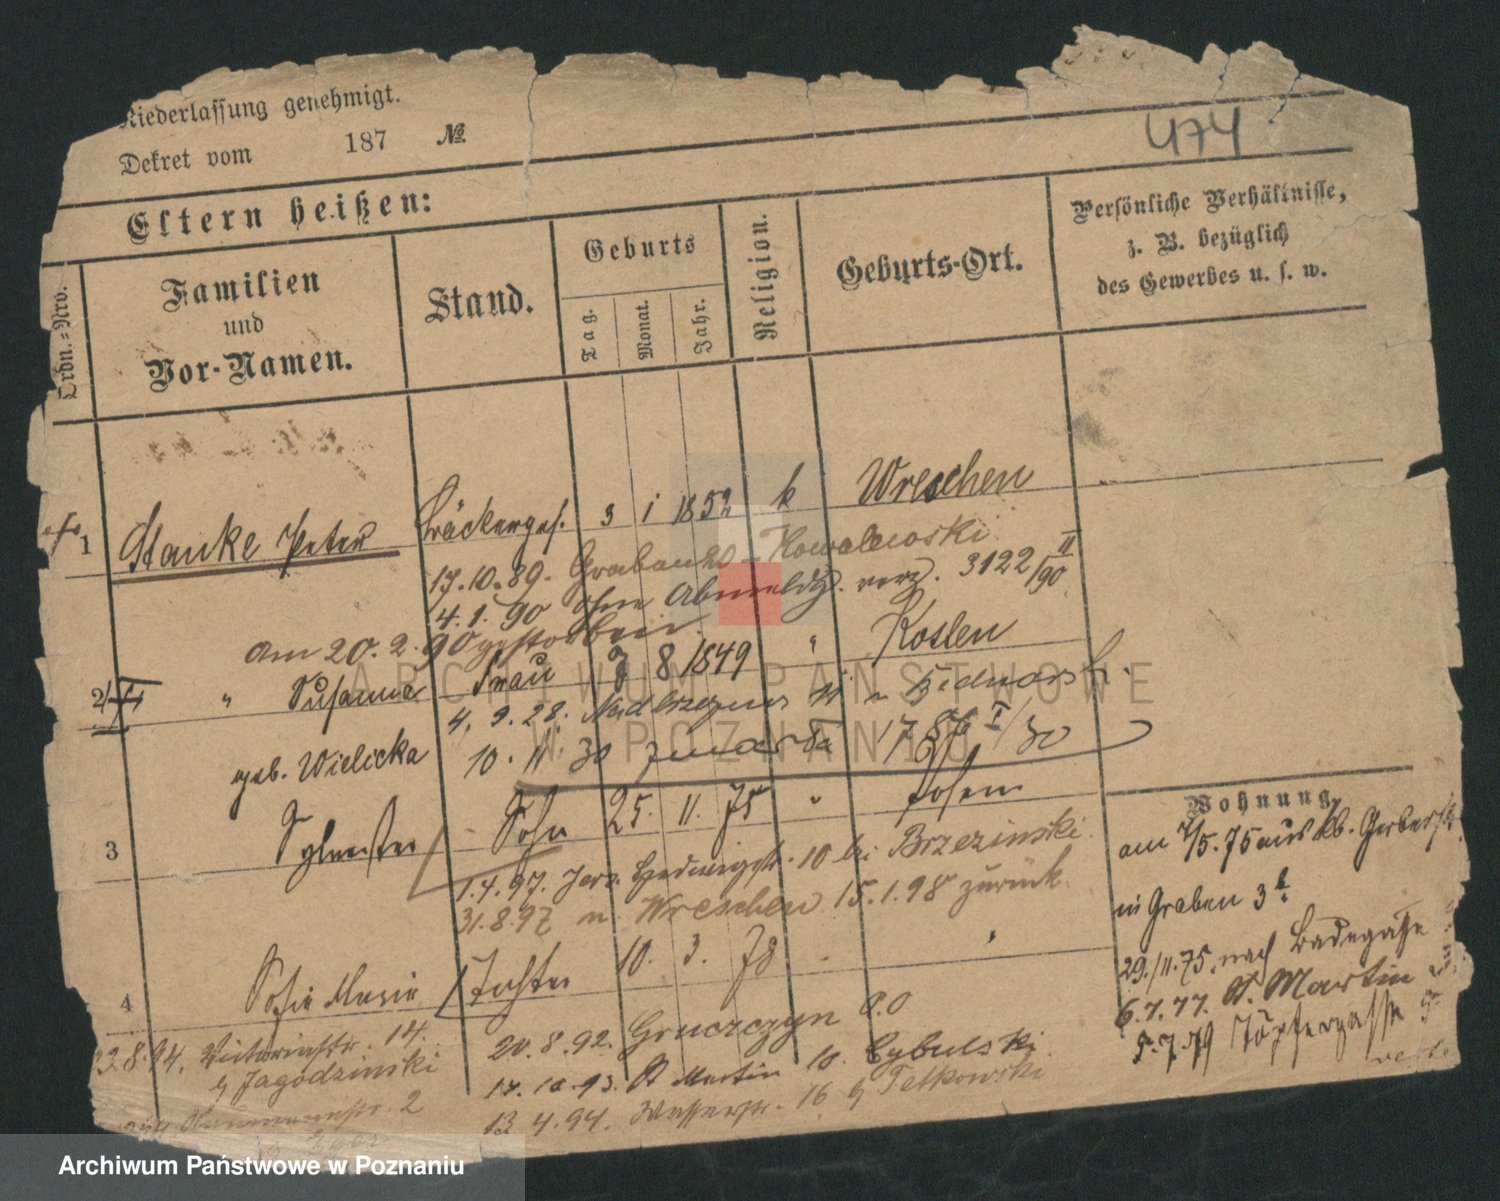 Niederlassung genehmigt.
Dekret vom 187 №
474
Eltern heißen:
Ordn.-Nro.
Familien
und
Vor-Namen.
Stand.
Geburts
Tag.
Monat.
Jahr.
Religion.
Geburts-Ort.
Persönliche Verhältnisse,
z. B. bezüglich
des Gewerbes u. s. w.
1 Stanke Peter Bäckerges. 3 1 1852 k Wreschen
17.10.89. Graben 20 - Kowalewski
4.1.90 ohne Abmeldg. verz. 3122 II/90
am 20.2.90 gestorben.
2 " Susanna Frau 8 1849 " Kosten
4.9.28. Nadbrzeżna
geb. Wielicka 10. 11. 30 zmarła
3 Sylvester Sohn 25. 11. 75 " Posen
1.4.97. Jers. Hedwigstr. 10 bei Brzezinski.
31.8.97 n Wreschen 15.1.98 zurück.
Wohnung
am 5.75 aus
in Graben 3
29./11.75. nach Badegasse
6.7.77. St. Martin
5.7.79 Töpfergasse
4 Sofie Marie Tochter 10. 3. 78
20.8.92. Gruczyn
17.10.93. St Martin 10. Cybulski
13.4.94. Wasserstr. 16 Tetkowski
8.94. Victoriastr. 14.
Jagodzinski
2
ARCHIWUM PAŃSTWOWE
W POZNANIU
Archiwum Państwowe w Poznaniu